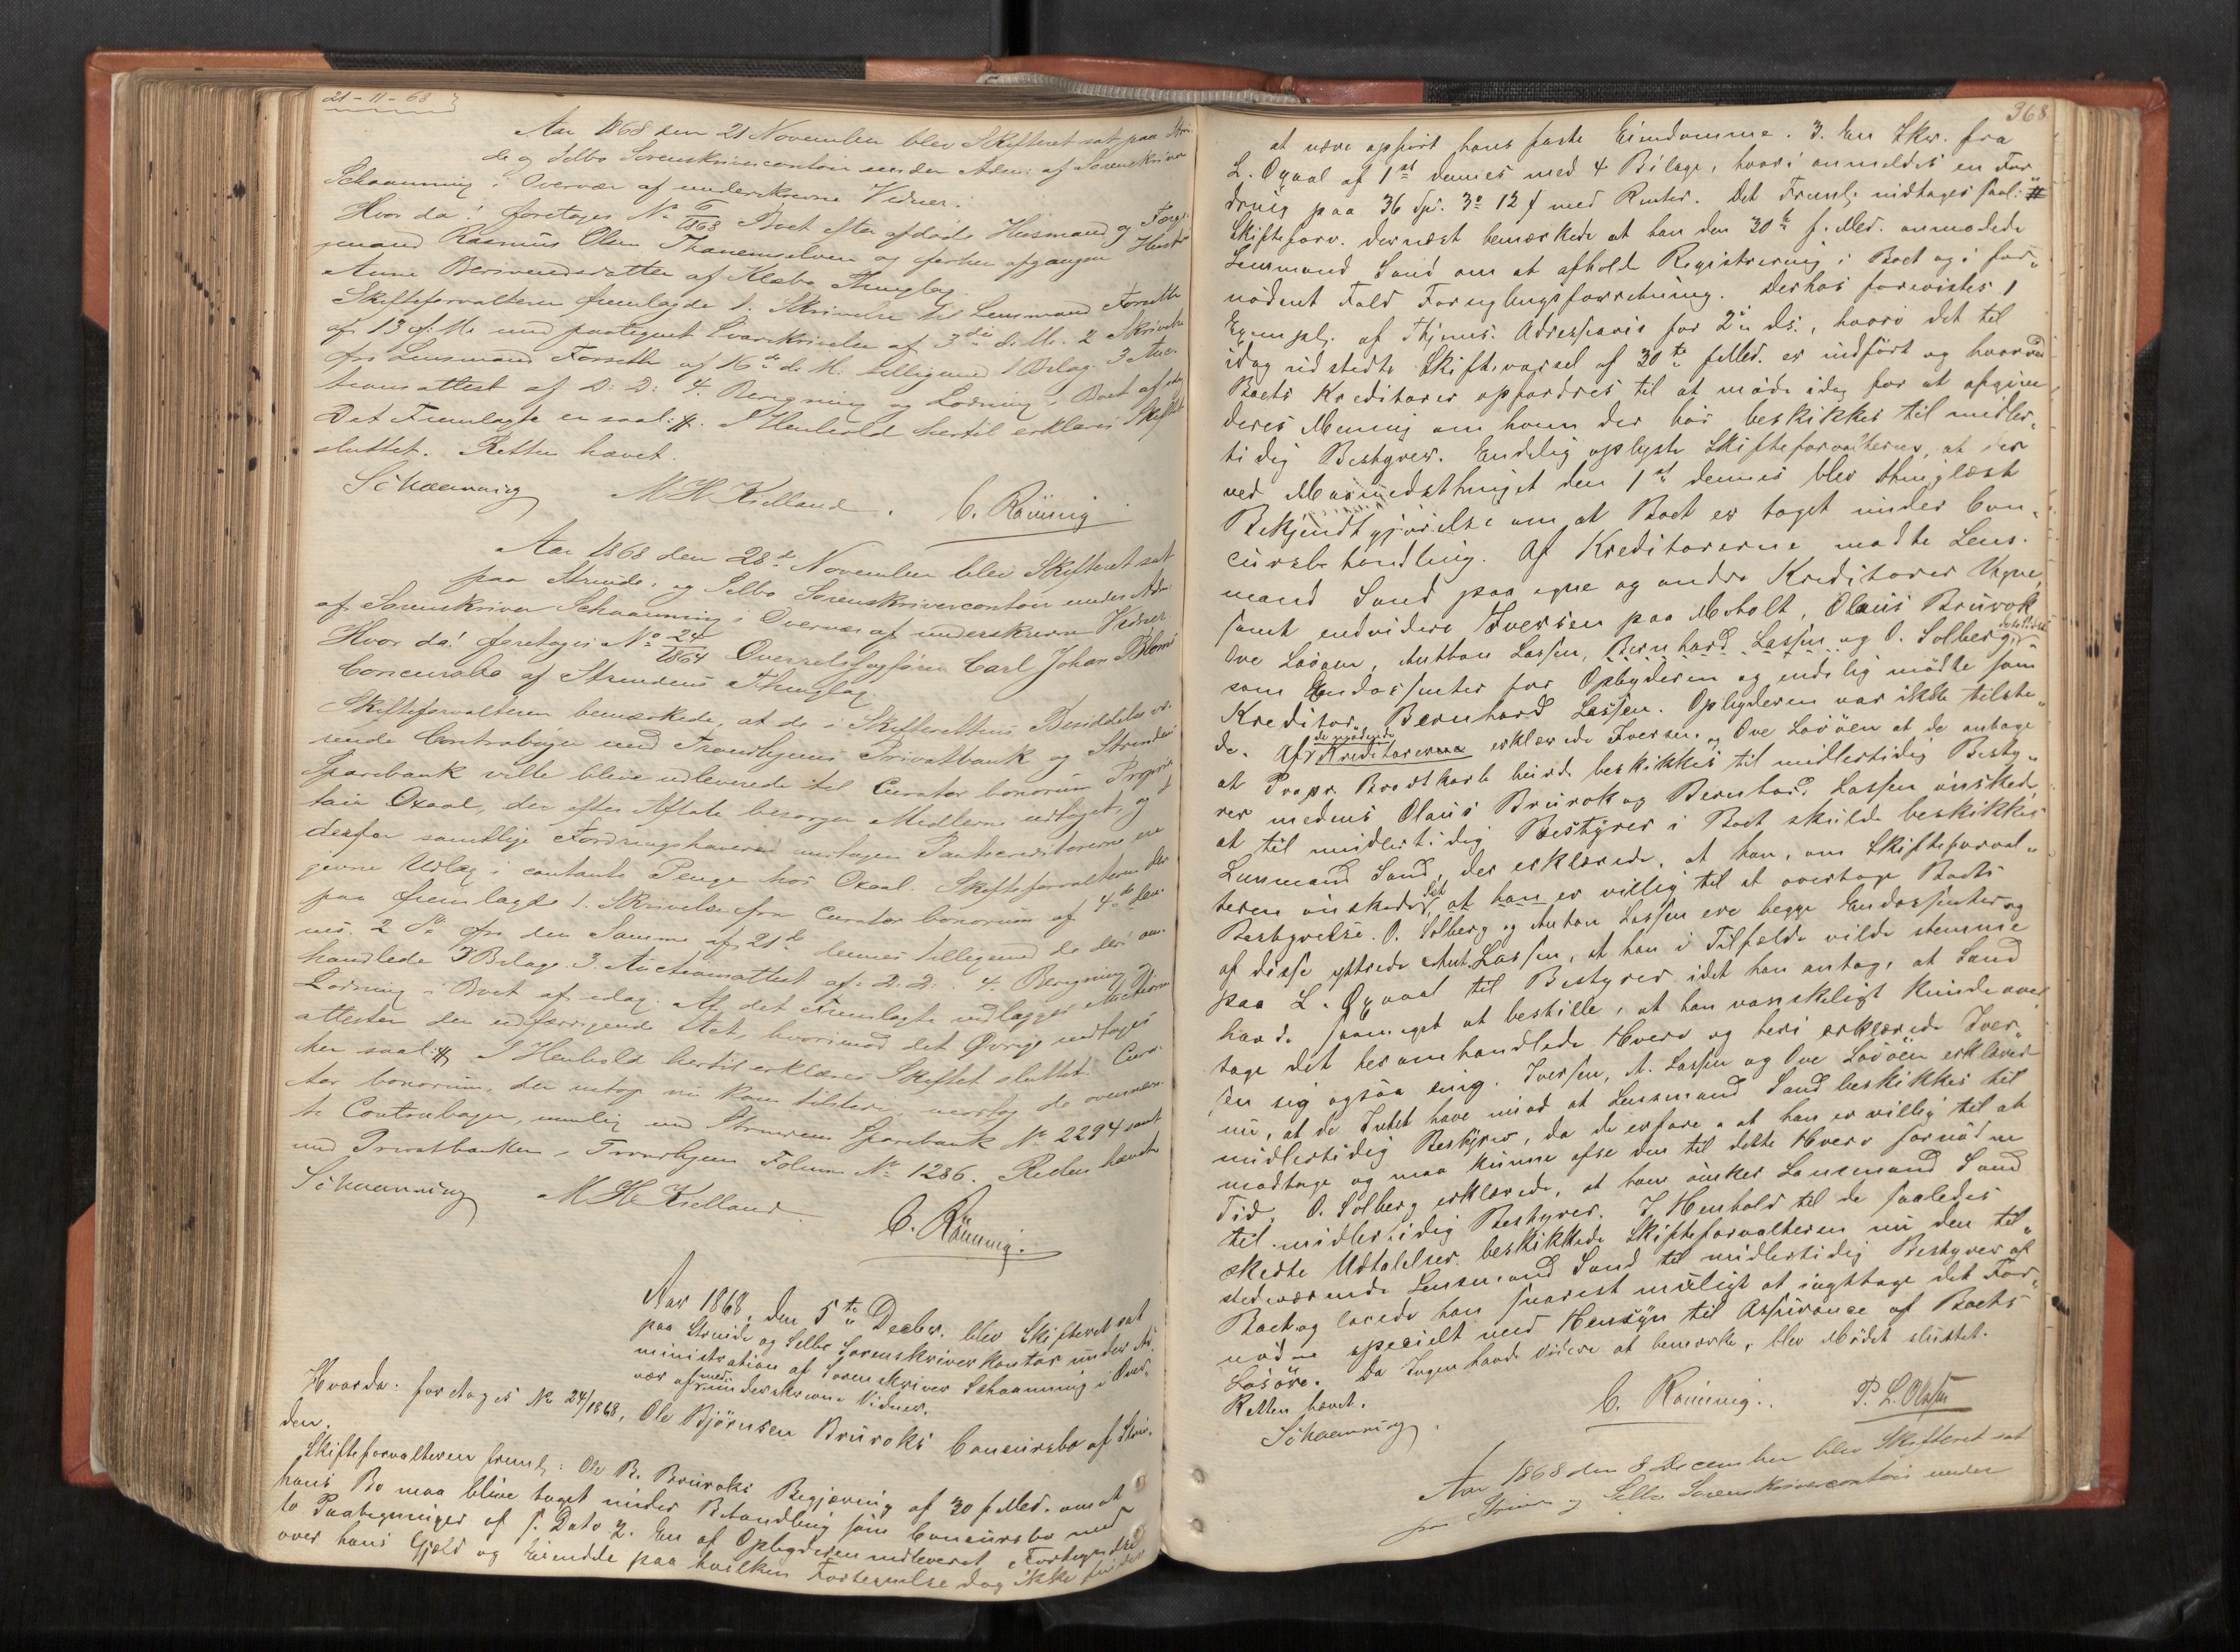 21-11-68
Aar 1868 den 21 November blev Skifteret sat paa Strin-
de og Selbo Sorenskrivercontoir under Adm: af Sorenskriver
Schaanning i Overvær af underskrevne Vidner.
Hvor da! foretoges No 6/1868 Boet efter afdöde Husmand og Færge-
mand Rasmus Olsen Thanemselven og forhen afgangne Hustr
Anne Berivendsdatter af Klæbo Thinglag
Skifteforvalteren fremlagde 1. Skrivelse til Lensmand Forseth
af 13 f: M. med paategnet Svarskrivelse af 3die d: M. 2 Skrivelse
fra Lensmand Forseth af 16de d. M. tilligemed 1 Bilag. 3 Auc-
tionsattest af D: D: 4. Beregning og Lodning i Boet af idag
Det Fremlagte er saal: #. I Henhold hertil erklæres Skiftet
sluttet. Retten hævet.
Schaanning M H Kielland. C. Rönning
Aar 1868 den 28de November blev Skifteret sat
paa Strinde- og Selbo Sorenskrivercontoir under Adm
af Sorenskriver Schaanning i Overvær af underskrevne Vidner
Hvor da! foretoges No 24/1864 Overretssagförer Carl Johan Bloms
Concursbo af Strindens Thinglag
Skifteforvalteren bemærkede, at de i Skifterettens Besiddelse væ-
rende Contraböger med Trondhjems Privatbank og Strindens
Sparebank ville blive udleverede til Curator bonorum Proprie-
tair Oxaal, der efter Aftale besørger Midlerne udtaget, og
derfor samtlige Fordringshavere undtagen Pantecreditorerne ere
givne Udlæg i contante Penge hos Oxaal. Skifteforvalteren der
paa fremlagde 1. Skrivelse fra Curator bonorum af 4de den-
nes. 2 Do fra den Samme af 21de dennes tilligemed de deri om-
handlede 3 Bilage. 3. Auctionsattest af D. D. 4. Beregning og
Lodning i Boet af idag. Af det Fremlagte vedlægges Auctions
attesten den udfærdigende Act, hvorimod det Øvrige indtages
her saal: # I Henhold hertil erklæres Skiftet sluttet. Cura-
tor bonorum, der netop nu kom tilstede, modtog de ovennævn-
te Contraböger, nemlig med Strindens Sparebank No 2294 samt
med Privatbanken i Trondhjem Folium No 1286. Retten hævet
Schaanning M H Kielland. C. Rönning.
Aar 1868, den 5te Decbr. blev Skifteret sat
paa Strinde og Selbo Sorenskriverkontor under Ad-
ministration af Sorenskriver Schaanning i Over-
vær af med underskrevne Vidner.
Hvorda: foretoges No 24/1868, Ole Björnsen Bruroks Concursbo af Strin-
den.
Skifteforvalteren freml: Ole B. Bruroks Begjæring af 30 f. Md. om at
hans Bo maa blive taget under Behandling som Concursbo med
to Paategninger af s. Dato 2. En af Opbyderen indleveret Fortegnelse
over hans Gjæld og Eiendele paa hvilken Fortegnelse dog ikke findes
368
at være opfört hans faste Eiendomme. 3. En Skr. fra
L. Oxaal af 1ste dennes med 4 Bilage, hvori anmeldes en For-
dring paa 36 Spd. 3 o 12 s med Renter. Det Freml. indtages saal: #
Skifteforv. dernæst bemærkede at han den 30te f. Md. anmodede
Lensmand Sand om at afholde Registrering i Boet og i for-
nödent Fald Forseglingsforretning. Derhos forevistes 1
Exempl. af Thjems. Adresseavis for 2den ds., hvori det til
idag udstedte Skiftevarsel af 30te f. Md. er indfört og hvorved
Boets Kreditorer opfordres til at möde idag for at afgive
deres Mening om hvem der bör beskikkes til midler-
tidig Bestyrer. Endelig oplyste Skifteforvalteren, at der
ved Maanedsthinget den 1ste dennes blev thinglæst
Bekjendtgjörelse om at Boet er taget under Con-
cursbehandling. Af Kreditorerne mödte Lens-
mand Sand paa egne og andre Kreditorers Vegne,
samt endvidere Iversen paa Moholt, Olaus Brurok
Ove Lööen, Anthon Lassen, Bernhard Lassen og O. Solberg,
som Endossenter for Opbyderen og endelig mödte som
Kreditor Bernhard Lassen. Opbyderen var ikke tilste-
de. Af de mødende Kreditorerne erklærede Iversen og Ove Lööen at de antage
at Propr. Brodtkorb burde beskikkes til midlertidig Besty-
rer medens Olaus Brurok og Bernhard Lassen önskede
at til midlertidig Bestyrer i Boet skulde beskikkes
Lensmand Sand, der erklærede, at han, om Skifteforval-
teren önskede det, at han er villig til at overtage Boets
Bestyrelse. O. Solberg og Anton Lassen ere begge Endossenter og
af disse yttrede Ant. Lassen, at han i Tilfælde vilde stemme
paa L. Oxaal til Bestyrer idet han antog, at Sand
havde saameget at bestille, at han vanskeligt kunde over-
tage det heromhandlede Hverv og heri erklærede Iver-
sen sig ogsaa enig. Iversen, A. Lassen og Ove Lööen erklærede
nu, at de Intet have imod at Lensmand Sand beskikkes til
midlertidig Bestyrer, da de erfare, at han er villig til at
modtage og maa kunne afse den til dette Hverv fornödne
Tid. O. Solberg erklærede, at han önsker Lensmand Sand
til midlertidig Bestyrer. I Henhold til de saaledes
skedte Udtalelser beskikkede Skifteforvalteren nu den til-
stedeværende Lensmand Sand til midlertidig Bestyrer af
Boet og lovede han snarest muligt at iagttage det For-
nödne specielt med Hensyn til Assurance af Boets
Lösöre. Da Ingen havde Videre at bemærke, blev Mödet sluttet.
Retten hævet.
Schaanning. C. Rönning. P. L. Olsen
Aar 1868 den 8 December blev Skifteret sat
paa Strinde og Selbo Sorenskrivercontoir under